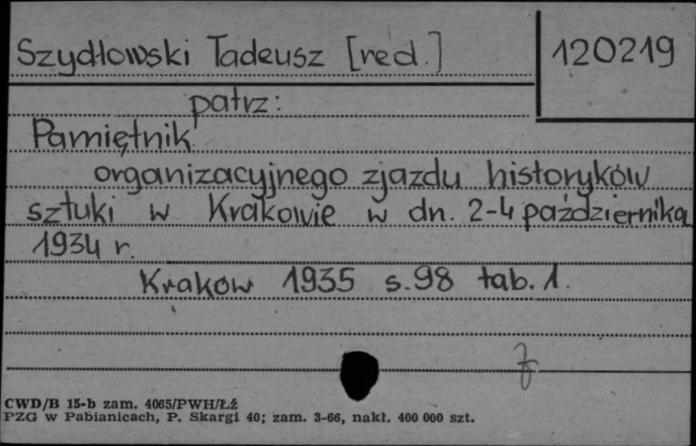 Szydłowski Tadeusz [red.]
120219
patrz:
Pamiętnik
organizacyjnego zjazdu historyków
sztuki w Krakowie w dn. 2-4 października
1934 r.
Kraków 1935 s. 98 tab. 1.
CWD/B 15-b zam. 4065/PWH/ŁŹ
PZG w Pabianicach, P. Skargi 40; zam. 3-66, nakł. 400 000 szt.